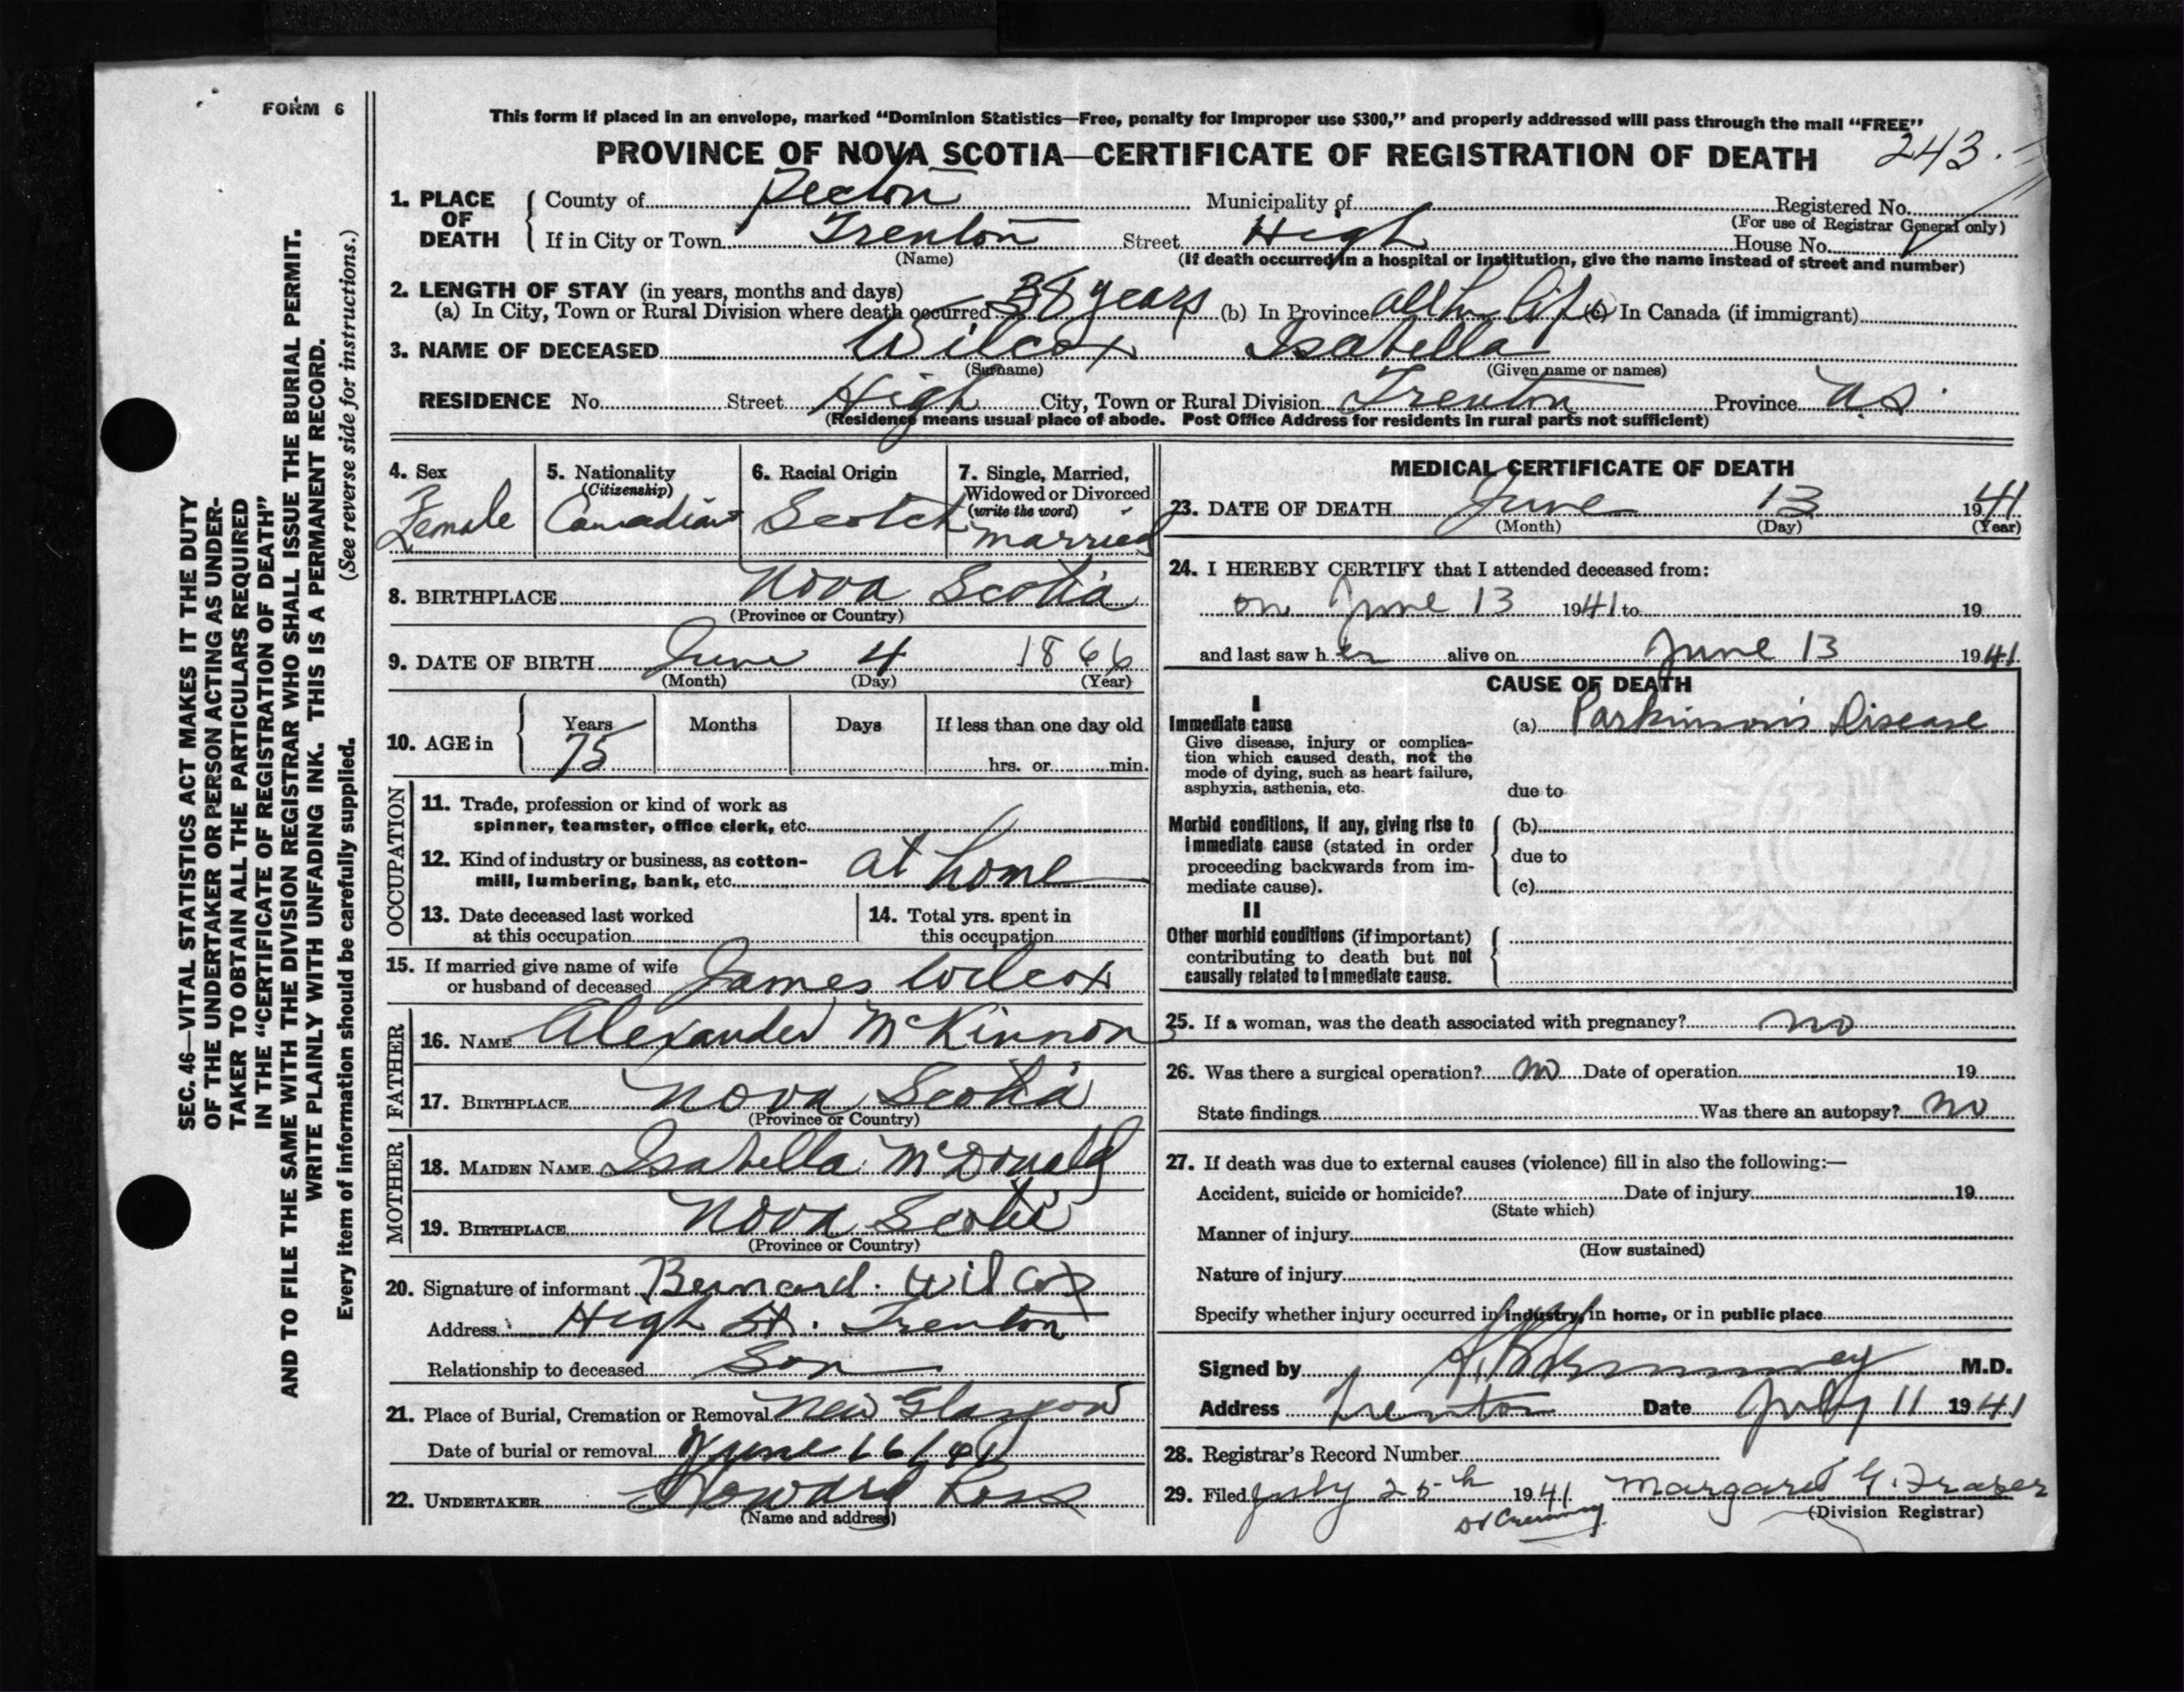 FORM 6
This form if placed in an envelope, marked “Dominion Statistics—Free, penalty for improper use $300,” and properly addressed will pass through the mail “FREE”
PROVINCE OF NOVA SCOTIA—CERTIFICATE OF REGISTRATION OF DEATH 243.
1. PLACE OF DEATH County of Pictou Municipality of Registered No.
(For use of Registrar General only)
If in City or Town Trenton Street High House No.
(Name) (If death occurred in a hospital or institution, give the name instead of street and number)
2. LENGTH OF STAY (in years, months and days)
(a) In City, Town or Rural Division where death occurred 38 years (b) In Province all her life (c) In Canada (if immigrant)
3. NAME OF DECEASED Wilcox Isabella
(Surname) (Given name or names)
RESIDENCE No. Street High City, Town or Rural Division Trenton Province N.S.
(Residence means usual place of abode. Post Office Address for residents in rural parts not sufficient)
4. Sex
Female
5. Nationality
(Citizenship)
Canadian
6. Racial Origin
Scotch
7. Single, Married,
Widowed or Divorced
(write the word)
married
8. BIRTHPLACE Nova Scotia
(Province or Country)
9. DATE OF BIRTH June 4 1866
(Month) (Day) (Year)
10. AGE in Years Months Days If less than one day old
75 hrs. or min.
OCCUPATION
11. Trade, profession or kind of work as
spinner, teamster, office clerk, etc.
12. Kind of industry or business, as cotton-
mill, lumbering, bank, etc. at home
13. Date deceased last worked
at this occupation
14. Total yrs. spent in
this occupation
15. If married give name of wife
or husband of deceased James Wilcox
FATHER
16. NAME Alexander McKinnon
17. BIRTHPLACE Nova Scotia
(Province or Country)
MOTHER
18. MAIDEN NAME Isabella McDonald
19. BIRTHPLACE Nova Scotia
(Province or Country)
20. Signature of informant Bernard Wilcox
Address High St. Trenton
Relationship to deceased Son
21. Place of Burial, Cremation or Removal New Glasgow
Date of burial or removal June 16/41
22. UNDERTAKER Howard Ross
(Name and address)
MEDICAL CERTIFICATE OF DEATH
23. DATE OF DEATH June 13 1941
(Month) (Day) (Year)
24. I HEREBY CERTIFY that I attended deceased from:
on June 13 1941 to 19
and last saw her alive on June 13 1941
CAUSE OF DEATH
I
Immediate cause (a) Parkinson's Disease
Give disease, injury or complica-
tion which caused death, not the
mode of dying, such as heart failure,
asphyxia, asthenia, etc. due to
Morbid conditions, if any, giving rise to (b)
immediate cause (stated in order due to
proceeding backwards from im-
mediate cause). (c)
II
Other morbid conditions (if important)
contributing to death but not
causally related to immediate cause.
25. If a woman, was the death associated with pregnancy? no
26. Was there a surgical operation? no Date of operation 19
State findings Was there an autopsy? no
27. If death was due to external causes (violence) fill in also the following:—
Accident, suicide or homicide? Date of injury 19
(State which)
Manner of injury
(How sustained)
Nature of injury
Specify whether injury occurred in industry, in home, or in public place
Signed by M.D.
Address Trenton Date July 11 1941
28. Registrar's Record Number
29. Filed July 25th 1941 Margaret G. Fraser
(Division Registrar)
SEC. 46—VITAL STATISTICS ACT MAKES IT THE DUTY
OF THE UNDERTAKER OR PERSON ACTING AS UNDER-
TAKER TO OBTAIN ALL THE PARTICULARS REQUIRED
IN THE “CERTIFICATE OF REGISTRATION OF DEATH”
AND TO FILE THE SAME WITH THE DIVISION REGISTRAR WHO SHALL ISSUE THE BURIAL PERMIT.
WRITE PLAINLY WITH UNFADING INK. THIS IS A PERMANENT RECORD.
Every item of information should be carefully supplied. (See reverse side for instructions.)